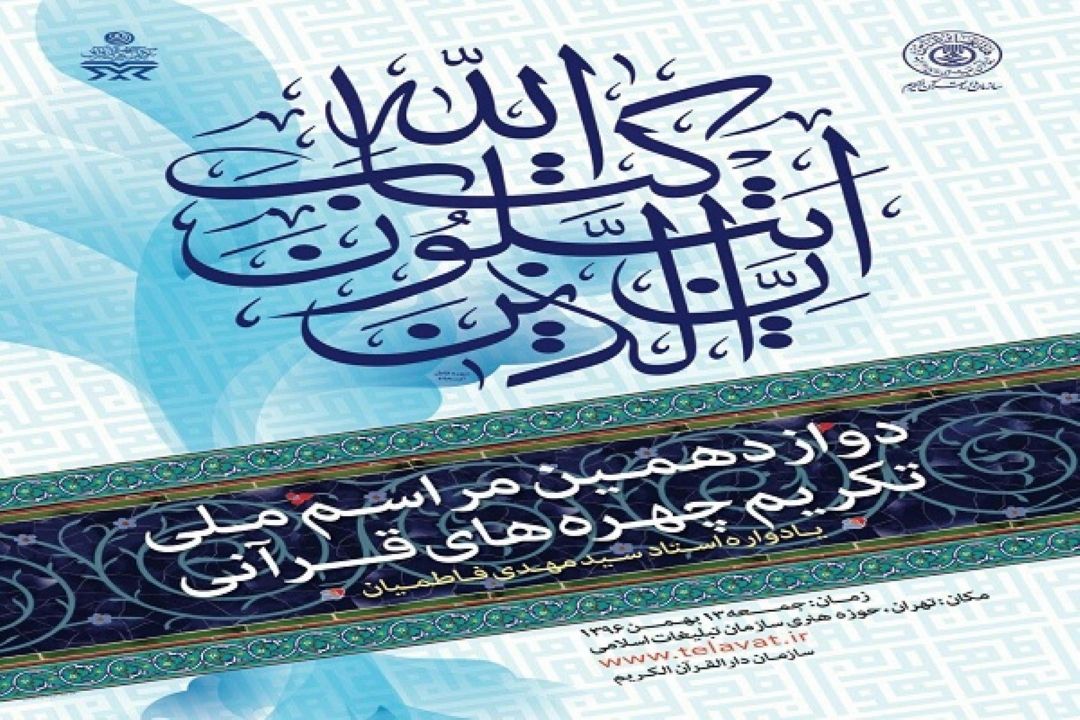 إن الذین یتلون کتاب الله
سازمان دارالقرآن الکریم
دوازدهمین مراسم ملی
تکریم چهره‌های قرآنی
یادواره استاد سید مهدی فاطمیان
زمان: جمعه ۱۳ بهمن ۱۳۹۶
مکان: تهران، حوزه هنری سازمان تبلیغات اسلامی
www.telavat.ir
سازمان دارالقرآن الکریم